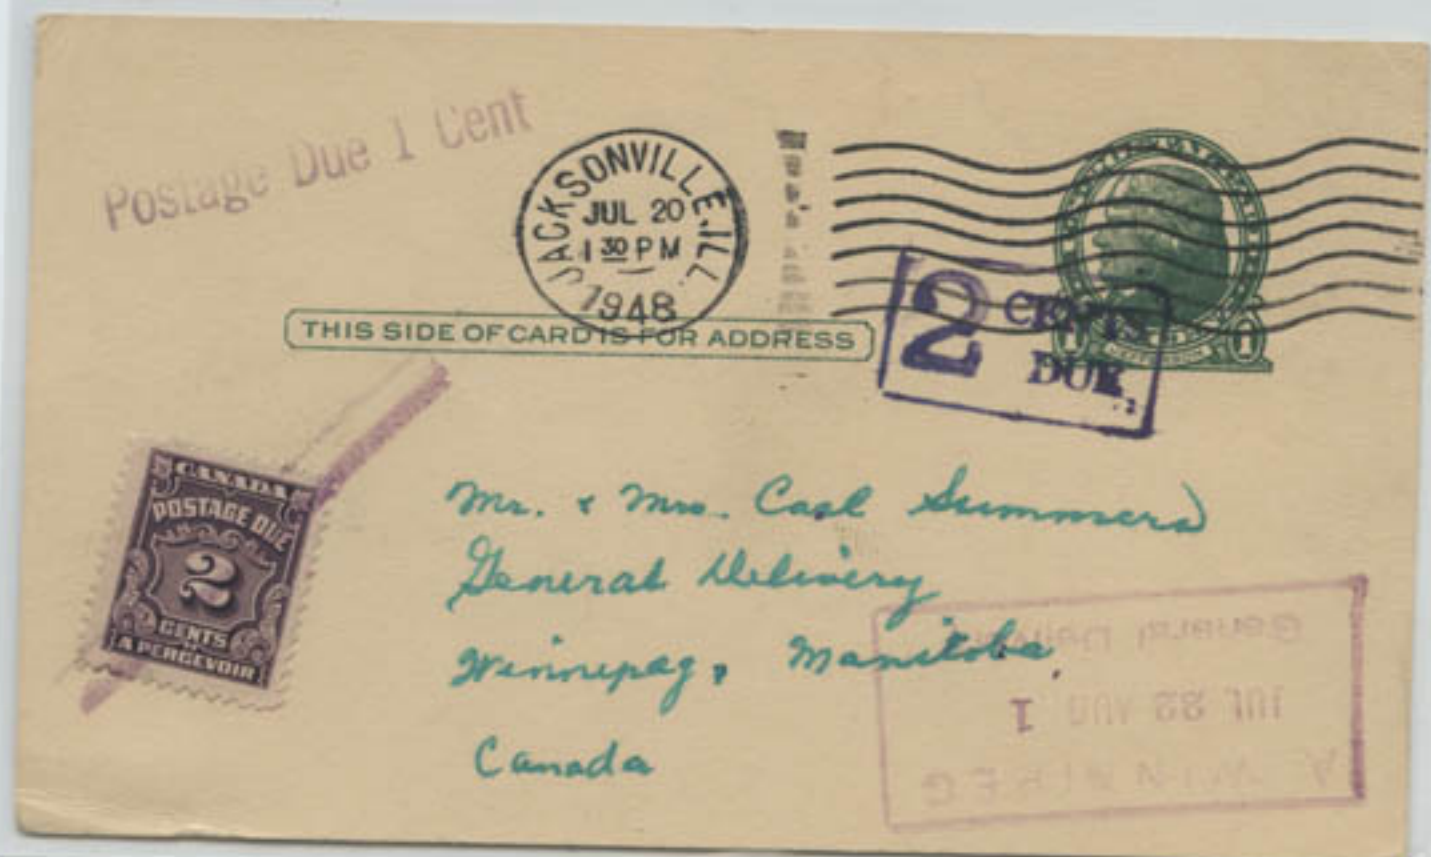 Postage Due 1 Cent
JACKSONVILLE, ILL.
JUL 20
1 30 PM
1948
THIS SIDE OF CARD IS FOR ADDRESS
2 CENTS
DUE
1 1
CANADA
POSTAGE DUE
2
CENTS
A PERCEVOIR
Mr. & Mrs. Carl Summers
General Delivery
Winnepag, Manitoba
Canada
General Delivery
JUL 22 AUG 1
WINNIPEG